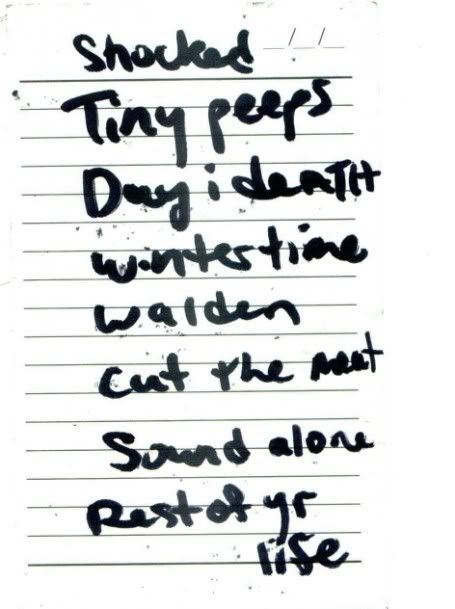 Shocked _/_/_
Tiny peeps
Day i death
wintertime
walden
cut the meat
Sound alone
Rest of yr
life